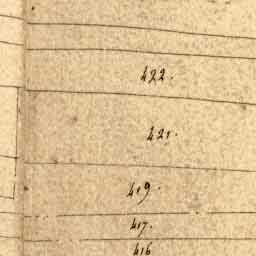 422.
421.
419.
417.
416